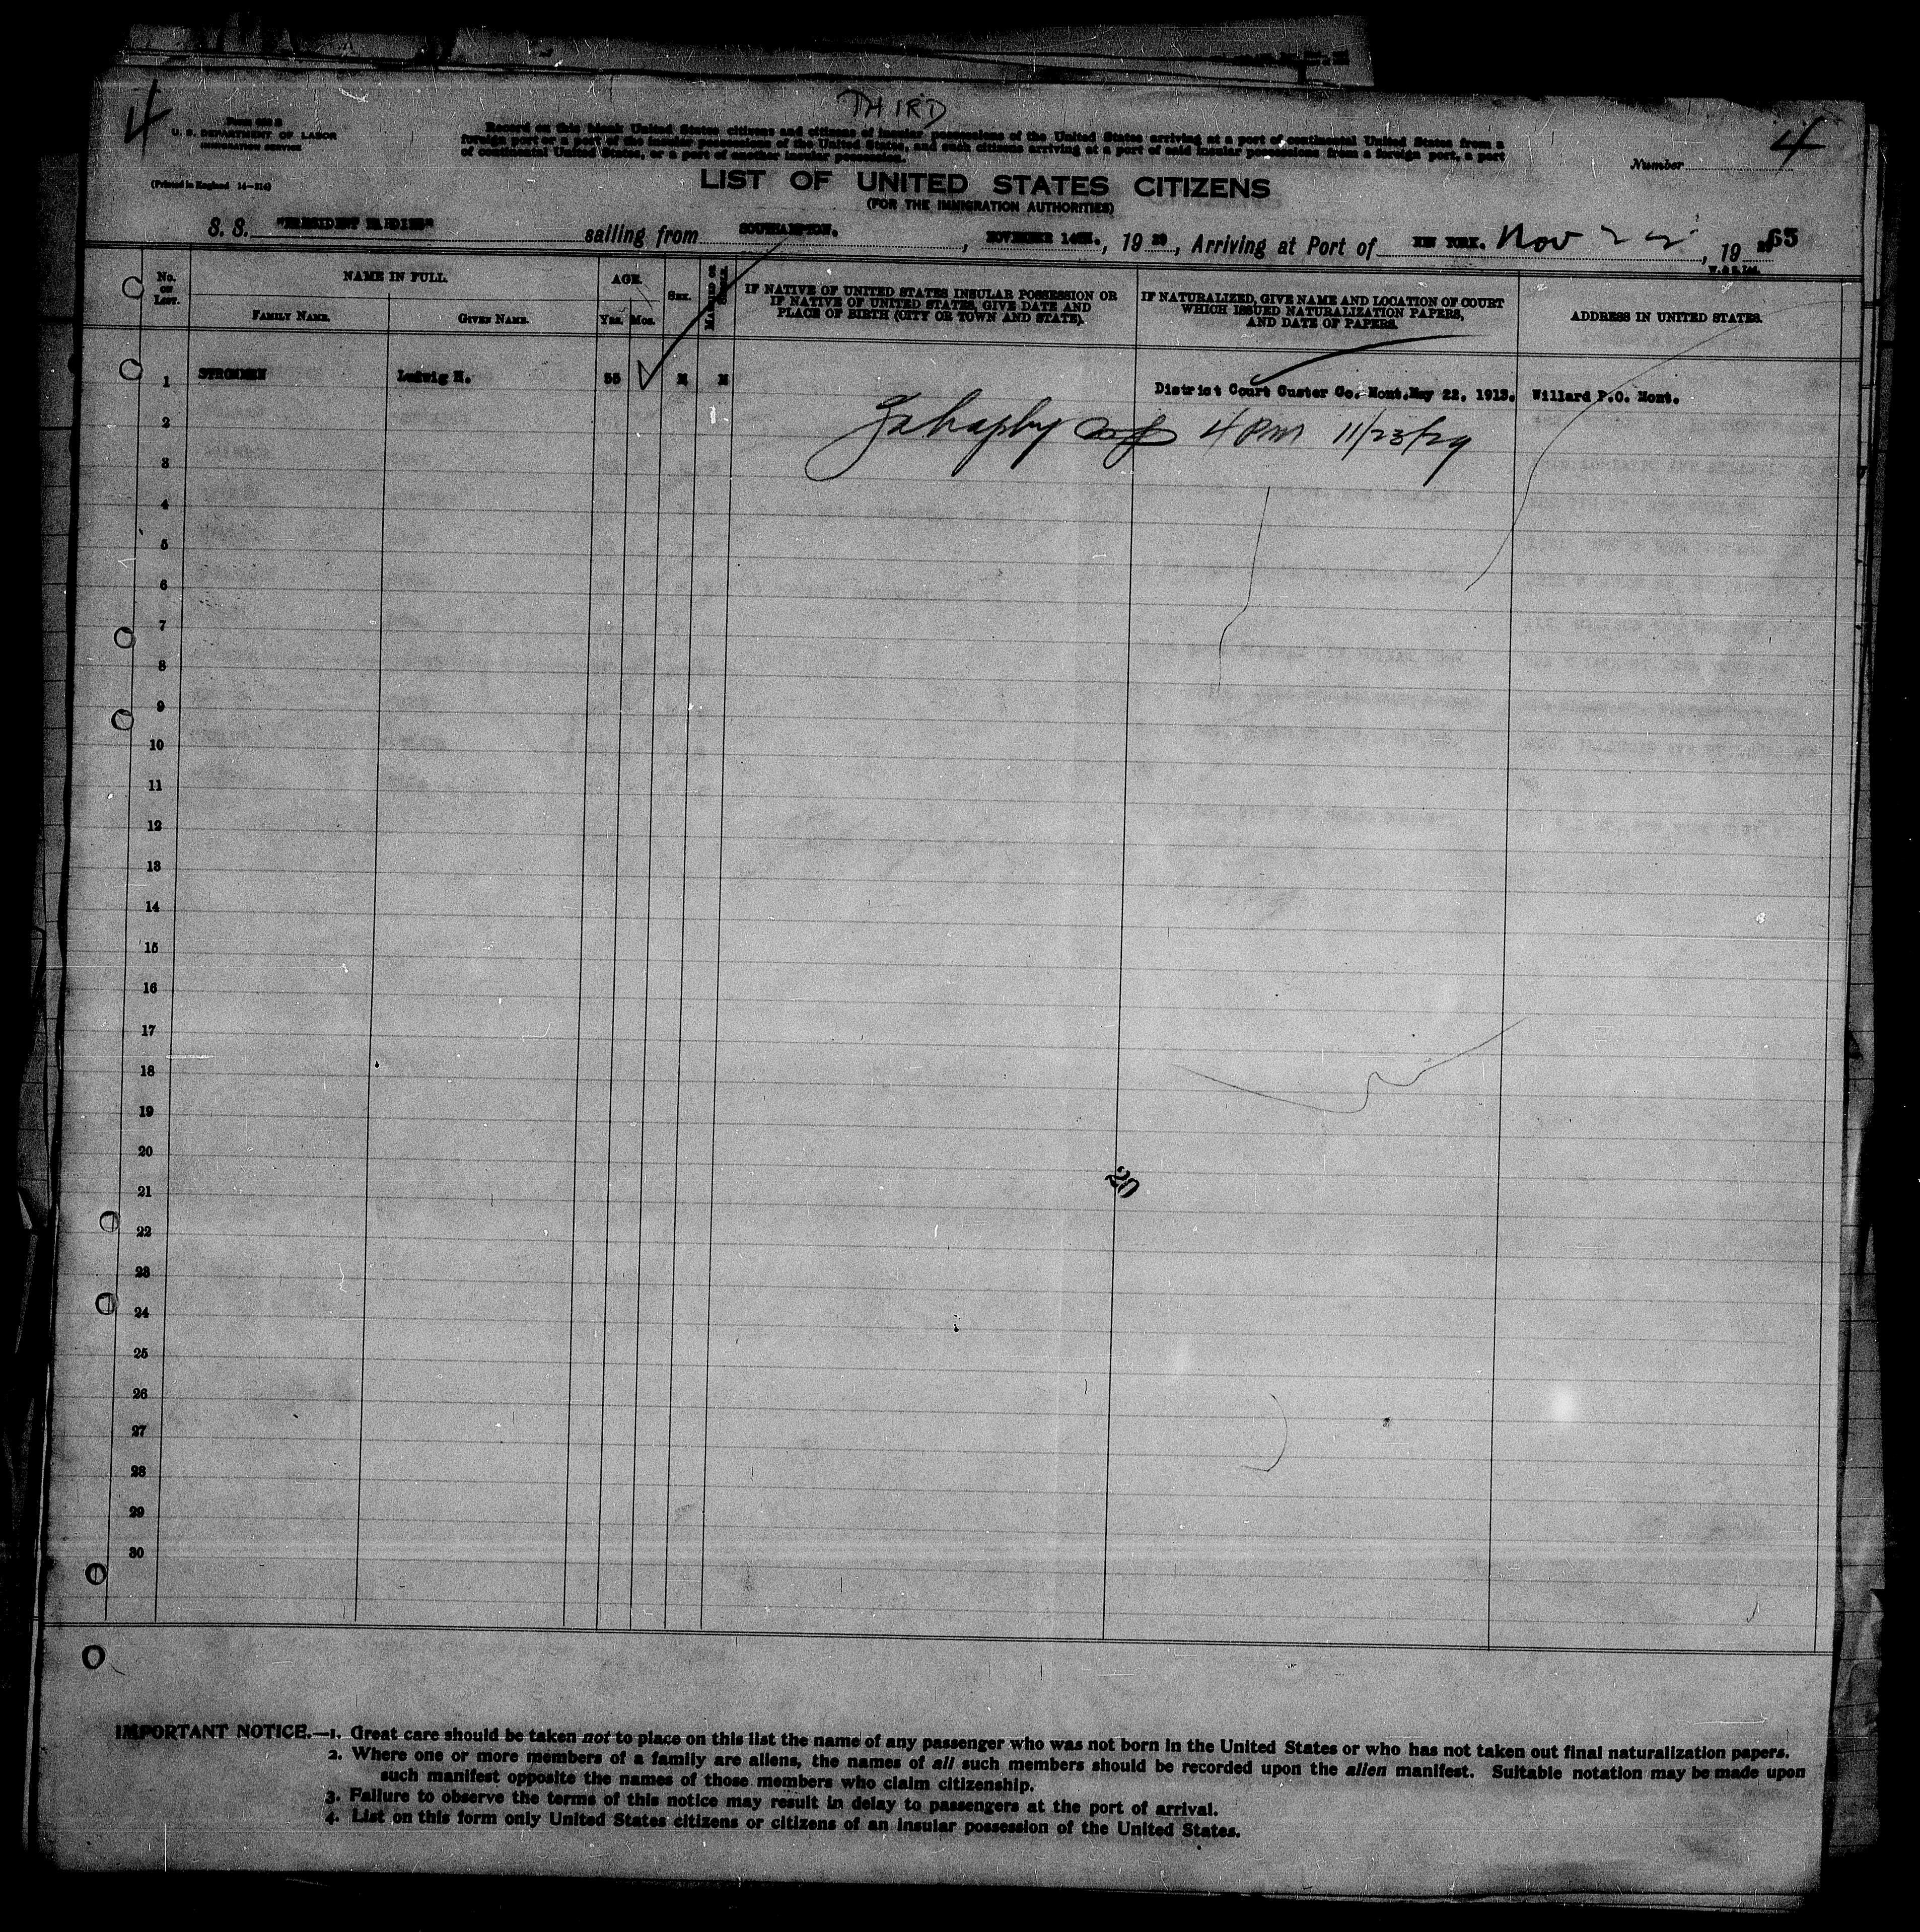 THIRD
4
4
Form 630 B
U. S. DEPARTMENT OF LABOR
IMMIGRATION SERVICE
(Printed in England 14—214)
Record on this blank United States citizens and citizens of insular possessions of the United States arriving at a port of continental United States from a
foreign port or a port of the insular possessions of the United States, and such citizens arriving at a port of said insular possessions from a foreign port, a port
of continental United States, or a port of another insular possession.
Number
LIST OF UNITED STATES CITIZENS
(FOR THE IMMIGRATION AUTHORITIES)
S. S. "PRESIDENT HARDING" sailing from SOUTHAMPTON. , NOVEMBER 14th. , 19 29 , Arriving at Port of NEW YORK. Nov 22 , 19 29
65
W. & S. Ltd.
No. ON LIST.
NAME IN FULL.
FAMILY NAME.
GIVEN NAME.
AGE.
Yrs. Mos.
SEX.
MARRIED OR SINGLE.
IF NATIVE OF UNITED STATES INSULAR POSSESSION OR
IF NATIVE OF UNITED STATES, GIVE DATE AND
PLACE OF BIRTH (CITY OR TOWN AND STATE).
IF NATURALIZED, GIVE NAME AND LOCATION OF COURT
WHICH ISSUED NATURALIZATION PAPERS,
AND DATE OF PAPERS.
ADDRESS IN UNITED STATES.
1 STROMMEN Ludwig H. 55 M M District Court Custer Co. Mont. May 22, 1913. Willard P.O. Mont.
4 PM 11/23/29
2
3
4
5
6
7
8
9
10
11
12
13
14
15
16
17
18
19
20
21
22
23
24
25
26
27
28
29
30
20
IMPORTANT NOTICE.—1. Great care should be taken not to place on this list the name of any passenger who was not born in the United States or who has not taken out final naturalization papers.
2. Where one or more members of a family are aliens, the names of all such members should be recorded upon the alien manifest. Suitable notation may be made upon
such manifest opposite the names of those members who claim citizenship.
3. Failure to observe the terms of this notice may result in delay to passengers at the port of arrival.
4. List on this form only United States citizens or citizens of an insular possession of the United States.